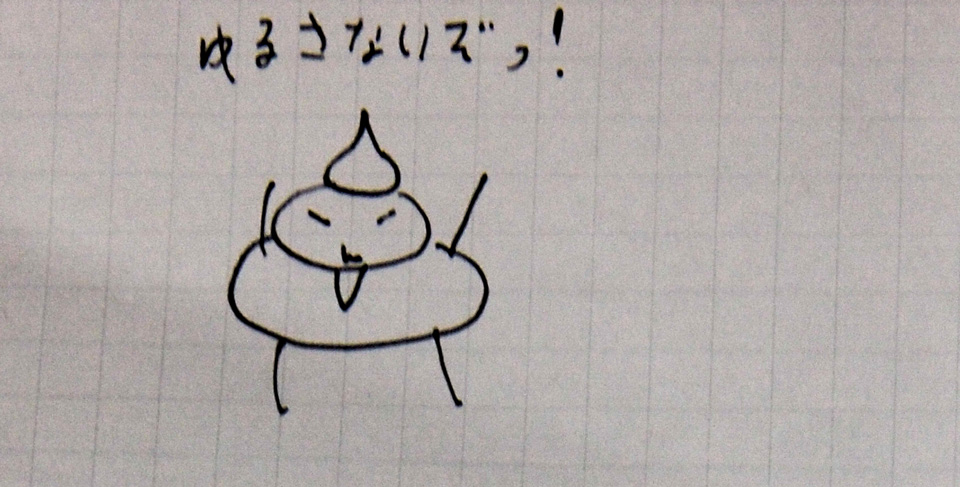 ゆるさないぞっ!